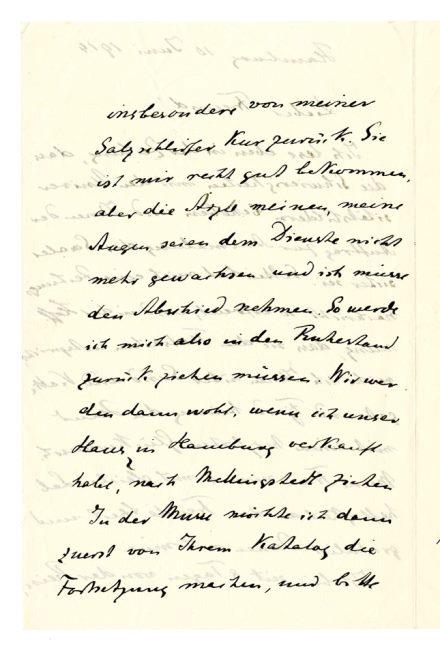 insbesondere von meiner
Salzschlirfer Kur zurück. Sie
ist mir recht gut bekommen,
aber die Ärzte meinen, meine
Augen seien dem Dienste nicht
mehr gewachsen und ich müsse
den Abschied nehmen. So werde
ich mich also in den Ruhestand
zurück ziehen müssen. Wir wer
den dann wohl, wenn ich unser
Haus in Hamburg verkauft
habe, nach Mellingstedt ziehen
In der Musse möchte ich dann
zuerst von Ihrem Katalog die
Fortsetzung machen, und bitte